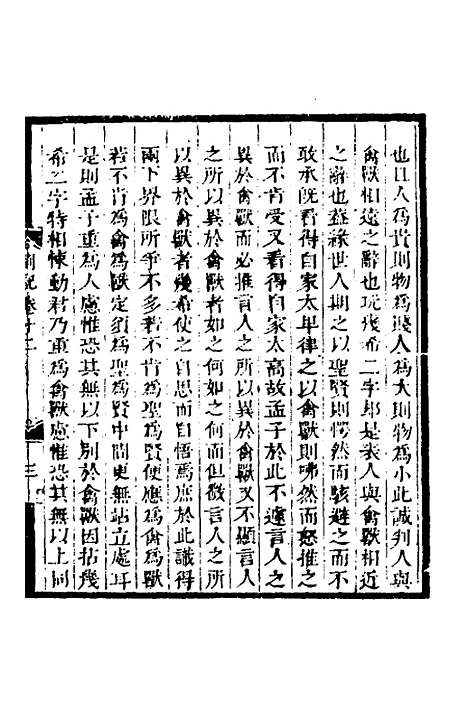 也且人為貴則物為賤人為大則物為小此誠判人與
禽獸相遠之辭也玩幾希二字却是表人與禽獸相近
之辭也蓋緣世人期之以聖賢則愕然而駭避之而不
敢承既看得自家太卑律之以禽獸則咈然而怒推之
而不肯受又看得自家太高故孟子於此不遽言人之
異於禽獸而必推言人之所以異於禽獸又不顯言人
之所以異於禽獸者如之何如之何而但微言人之所
以異於禽獸者幾希使之自思而自悟焉庶於此識得
兩下界限所爭不多若不肯為聖為賢便應為禽為獸
若不肯為禽為獸定須為聖為賢中間更無站立處耳
是則孟子重為人慮惟恐其無以下別於禽獸因拈幾
希二字特相悚動君乃重為禽獸慮惟恐其無以上同
劄記 卷十二 三